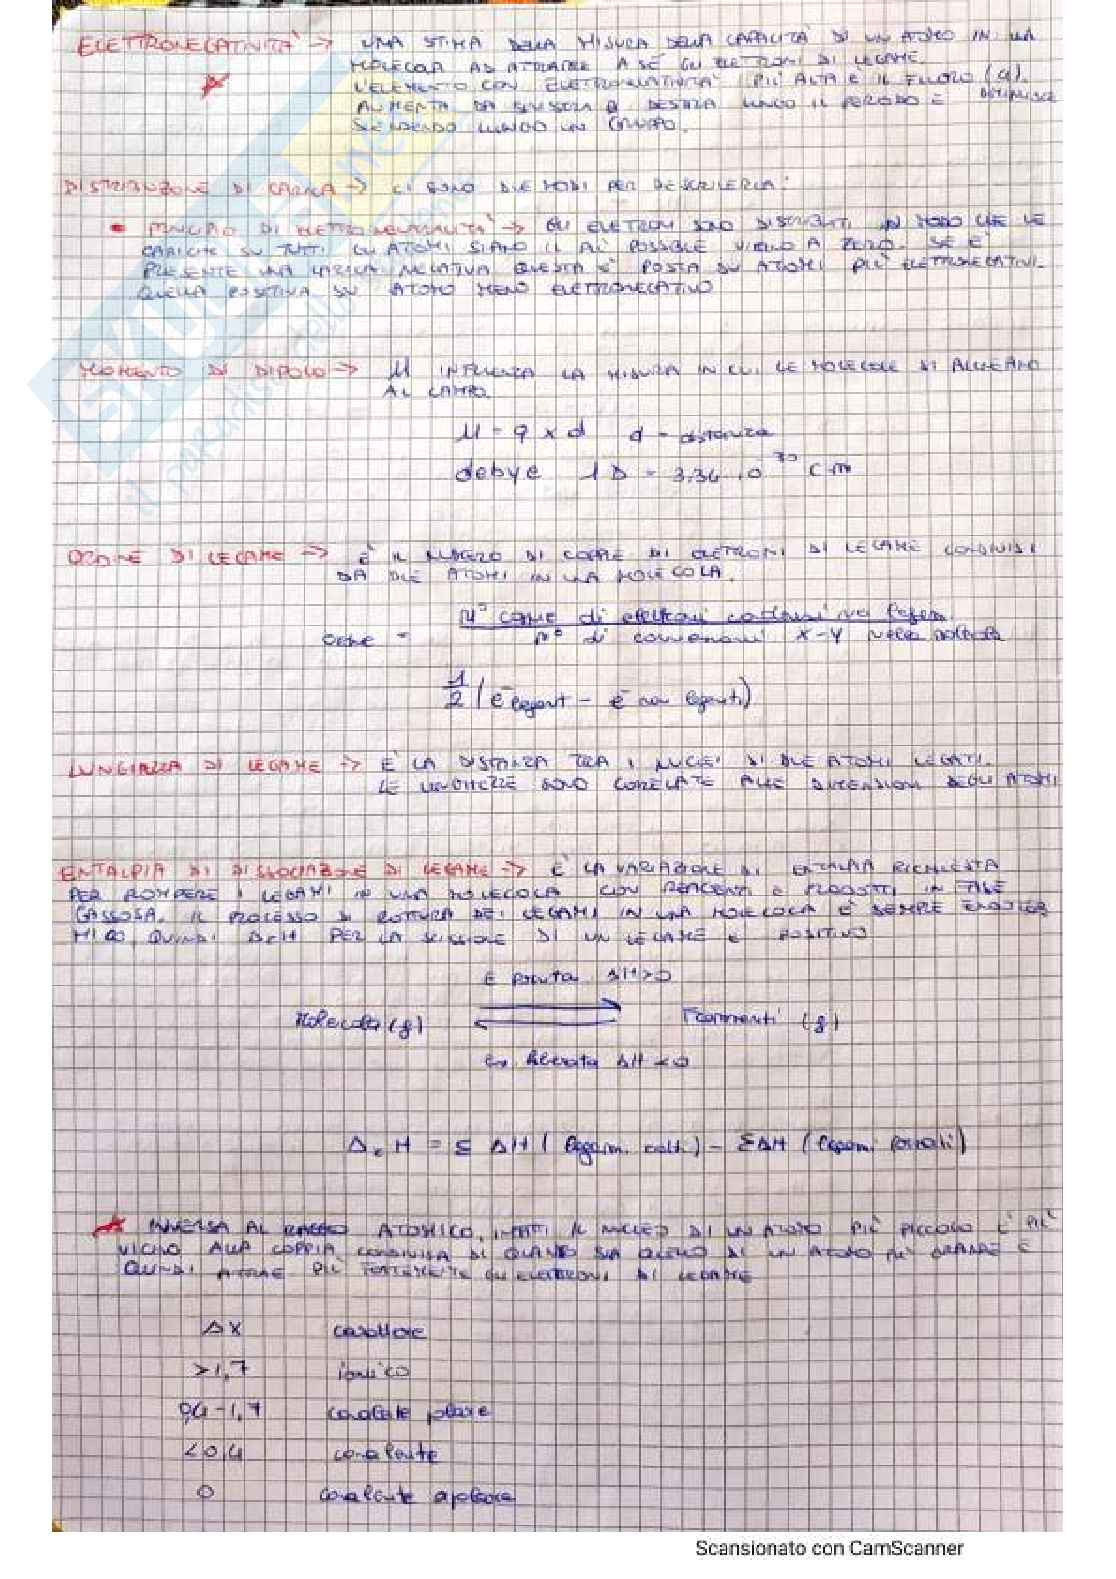 ELETTRONEGATIVITÀ -> UNA STIMA DELLA MISURA DELLA CAPACITÀ DI UN ATOMO IN UNA
MOLECOLA AD ATTRARRE A SÉ GLI ELETTRONI DI LEGAME.
L'ELEMENTO CON ELETTRONEGATIVITÀ PIÙ ALTA È IL FLUORO (4).
AUMENTA DA SINISTRA A DESTRA LUNGO IL PERIODO E DIMINUISCE
SCENDENDO LUNGO UN GRUPPO.
DISTRIBUZIONE DI CARICA -> CI SONO DUE MODI PER DESCRIVERLA:
• PRINCIPIO DI ELETTRONEUTRALITÀ -> GLI ELETTRONI SONO DISTRIBUITI IN MODO CHE LE
CARICHE SU TUTTI GLI ATOMI SIANO IL PIÙ POSSIBILE VICINO A ZERO. SE È
PRESENTE UNA CARICA NEGATIVA QUESTA È POSTA SU ATOMI PIÙ ELETTRONEGATIVI.
QUELLA POSITIVA SU ATOMO MENO ELETTRONEGATIVO
MOMENTO DI DIPOLO -> μ INFLUENZA LA MISURA IN CUI LE MOLECOLE SI ALLINEANO
AL CAMPO.
μ = q x d d = distanza
debye 1 D = 3,34 · 10 30 C m
ORDINE DI LEGAME -> È IL NUMERO DI COPPIE DI ELETTRONI DI LEGAME CONDIVISI
DA DUE ATOMI IN UNA MOLECOLA.
N° COPPIE di elettroni condivisi nei legami
Ordine =
n° di X-Y nella molecola
1/2 (e⁻ legant - e⁻ non leganti)
LUNGHEZZA DI LEGAME -> È LA DISTANZA TRA I NUCLEI DI DUE ATOMI LEGATI.
LE LUNGHEZZE SONO CORRELATE ALLE DIMENSIONI DEGLI ATOMI
ENTALPIA DI DISSOCIAZIONE DI LEGAME -> È LA VARIAZIONE DI ENTALPIA RICHIESTA
PER ROMPERE I LEGAMI IN UNA MOLECOLA CON REAGENTI E PRODOTTI IN FASE
GASSOSA. IL PROCESSO DI ROTTURA DEI LEGAMI IN UNA MOLECOLA È SEMPRE ENDOTER
MICO QUINDI ΔrH PER LA SCISSIONE DI UN LEGAME È POSITIVO
E fornita ΔH>0
Molecola (g) Frammenti (g)
En liberata ΔH<0
ΔrH = Σ ΔH (legam. rotti) - ΣΔH (legam. formati)
INVERSA AL RAGGIO ATOMICO, INFATTI IL NUCLEO DI UN ATOMO PIÙ PICCOLO È PIÙ
VICINO ALLA COPPIA CONDIVISA DI QUANTO SIA QUELLO DI UN ATOMO PIÙ GRANDE E
QUINDI ATTRAE PIÙ FORTEMENTE GLI ELETTRONI DI LEGAME
ΔX carattere
>1,7 ionico
0,4-1,7 covalente polare
<0,4 covalente
0 covalente apolare
Scansionato con CamScanner